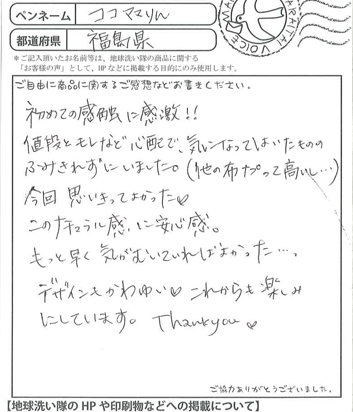 ペンネーム ココママりん
都道府県 福島県
＊ご記入頂いたお名前等は、地球洗い隊の商品に関する
「お客様の声」として、HPなどに掲載する目的にのみ使用します。
ご自由に商品に関するご感想などお書きください。
初めての感触に感激!!
値段とモレなど心配で、気になってはいたものの
ふみきれずにいました。(他の布ナプって高いし…)
今回 思いきってよかった♡
このナチュラル感。に安心感。
もっと早く 気がむいていればよかった…。
デザインもかわゆい♡ これからも楽しみ
にしています。 Thankyou♡
ご協力ありがとうございました。
【地球洗い隊のHPや印刷物などへの掲載について】